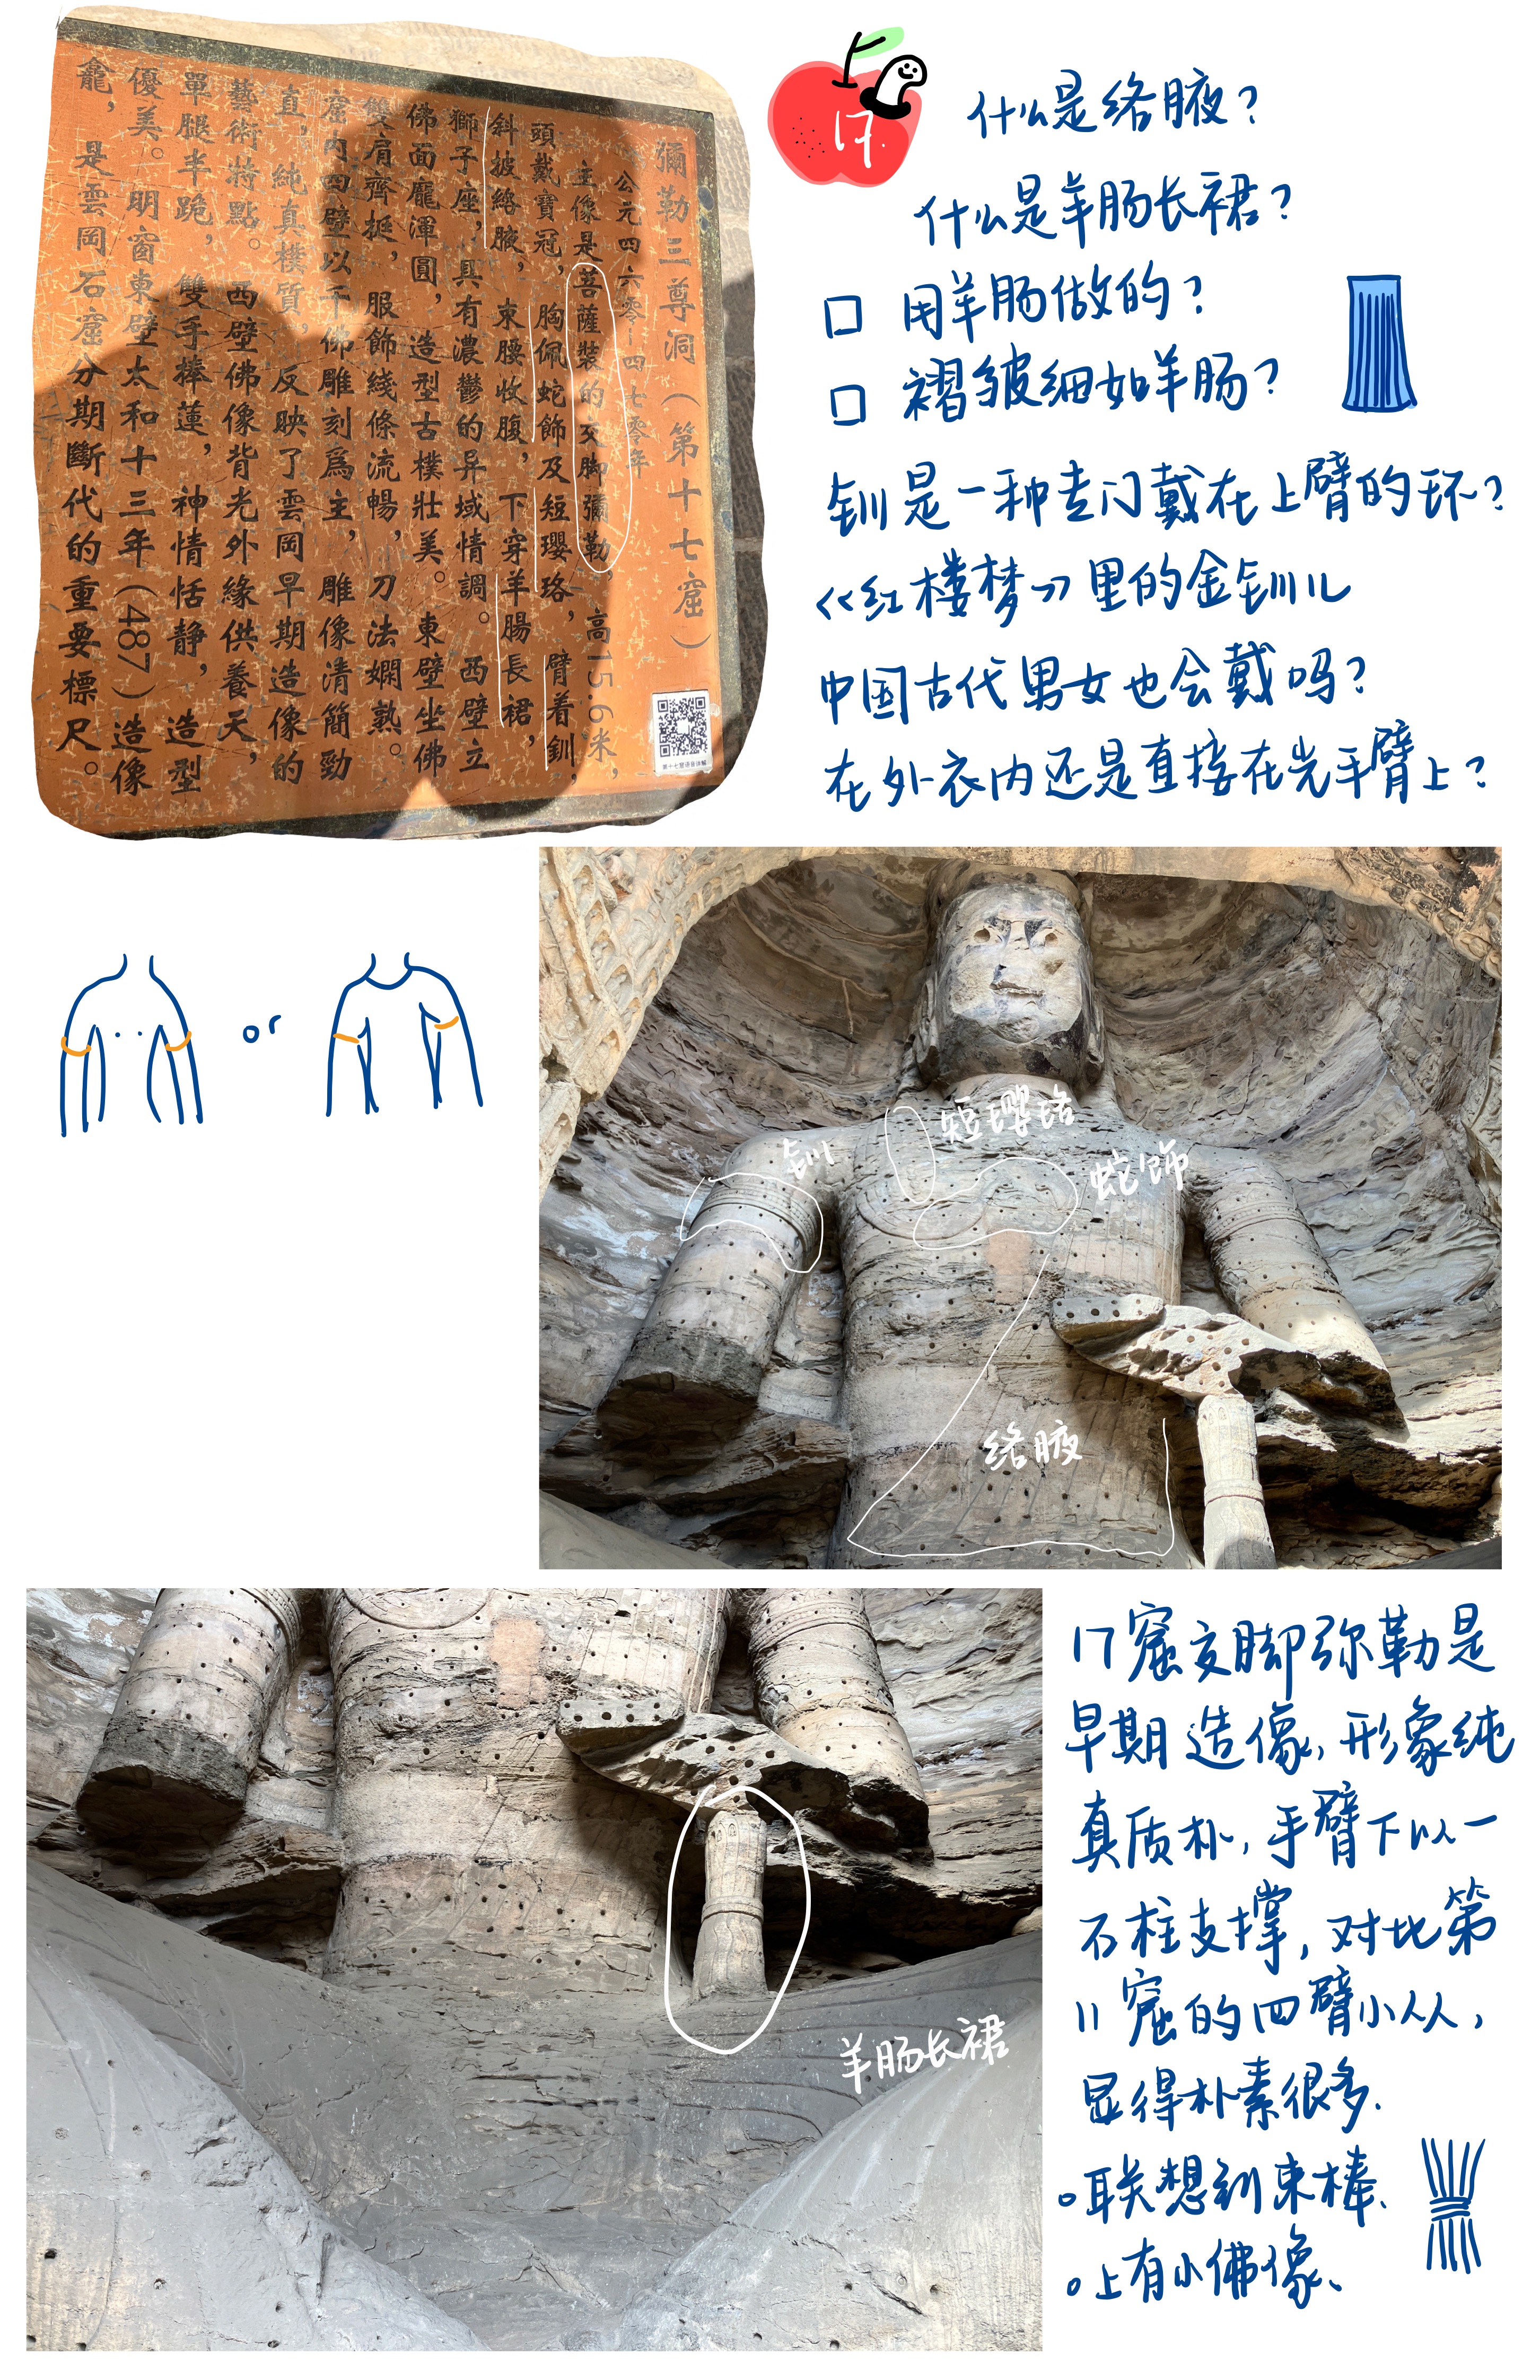 彌勒三尊洞（第十七窟）
公元四六零—四七零年
主像是菩薩裝的交脚彌勒，高15.6米，
頭戴寶冠，胸佩蛇飾及短瓔珞，臂着釧，
斜披絡腋，束腰收腹，下穿羊腸長裙，
獅子座，具有濃鬱的异域情調。西壁立
佛面龐渾圓，造型古樸壯美。東壁坐佛
雙肩齊挺，服飾綫條流暢，刀法嫻熟。
窟内四壁以千佛雕刻爲主，雕像清簡勁
直，純真樸質，反映了雲岡早期造像的
藝術特點。西壁佛像背光外緣供養天，
單腿半跪，雙手捧蓮，神情恬静，造型
優美。明窗東壁太和十三年（487）造像
龕，是雲岡石窟分期斷代的重要標尺。
17.
什么是络腋？
什么是羊肠长裙？
□ 用羊肠做的？
□ 褶皱细如羊肠？
钏是一种专门戴在上臂的环？
《红楼梦》里的金钏儿
中国古代男女也会戴吗？
在外衣内还是直接在光手臂上？
or
短璎珞
钏
蛇饰
络腋
羊肠长裙
17窟交脚弥勒是
早期造像，形象纯
真质朴，手臂下以一
石柱支撑，对比第
11窟的四臂小人，
显得朴素很多.
联想到束棒、
上有小佛像、